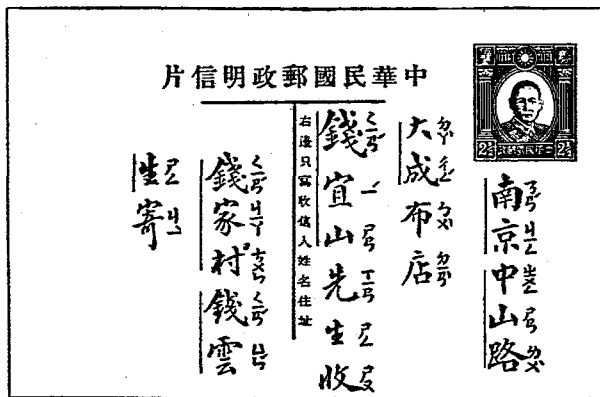 中華民國郵政明信片
南京中山路
大成布店
錢宜山先生收
右邊只寫收信人姓名住址
錢家村錢雲
生寄